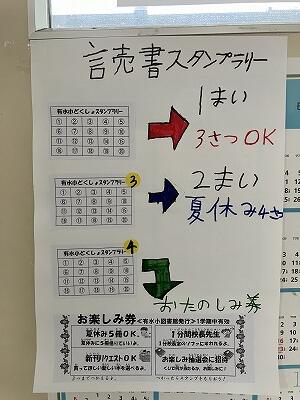 読書スタンプラリー
有水小どくしょスタンプラリー
① ② ③ ④ ⑤
⑥ ⑦ ⑧ ⑨ ⑩
⑪ ⑫ ⑬ ⑭ ⑮
⑯ ⑰ ⑱ ⑲ ⑳
1まい
3さつOK
有水小どくしょスタンプラリー
3
① ② ③ ④ ⑤
⑥ ⑦ ⑧ ⑨ ⑩
⑪ ⑫ ⑬ ⑭ ⑮
⑯ ⑰ ⑱ ⑲ ⑳
2まい
夏休み4さつ
有水小どくしょスタンプラリー
4
① ② ③ ④ ⑤
⑥ ⑦ ⑧ ⑨ ⑩
⑪ ⑫ ⑬ ⑭ ⑮
⑯ ⑰ ⑱ ⑲ ⑳
おたのしみ券
お楽しみ券<有水小図書館発行>1学期中有効
夏休み5冊OK
夏休みに5冊借りていいよ。
1分間校長先生
1分校長室のソファにすわれるよ。
新刊リクエストOK
買ってほしい新しい本を選べるよ。
お楽しみ抽選会に招待